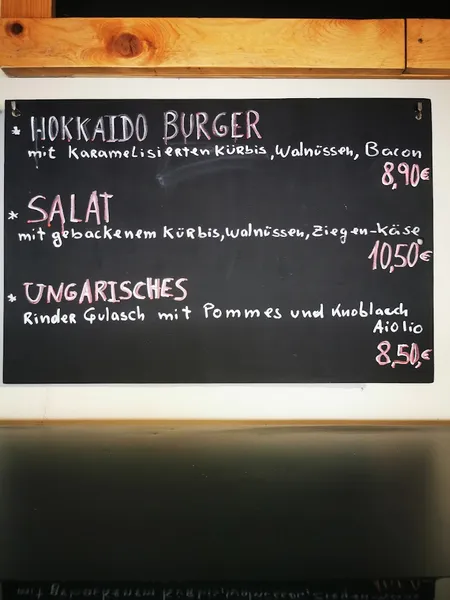 * HOKKAIDO BURGER
mit Karamelisierten Kürbis, Walnüssen, Bacon
8,90€
* SALAT
mit gebackenem Kürbis, Walnüssen, Ziegen-Käse
10,50€
* UNGARISCHES
Rinder Gulasch mit Pommes und Knoblauch
Aiolio
8,50,€